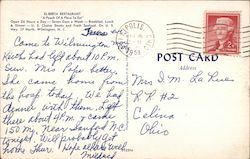 EL-BERTA RESTAURANT
"A Peach Of A Place To Eat"
Open 24 Hours a Day — Seven Days a Week — Breakfast, Lunch
& Dinner — U. S. Choice Steaks and Fresh Seafood — On U. S.
Hwy. 17 North, Wilmington, N. C.
Came to Wilmington
had left about 10 P.M.
Sun. Mrs Pope
She came home from
the hosp today. We had
dinner with them. Left
there about 4 P.M. came
150 my. Near Sanford N.C.
tonight. Will probably get
home Thur. Hope all are well
Mildred
1958
POST CARD
Address
Mrs D. M. La Rue
R. R. # 2
Celina
Ohio